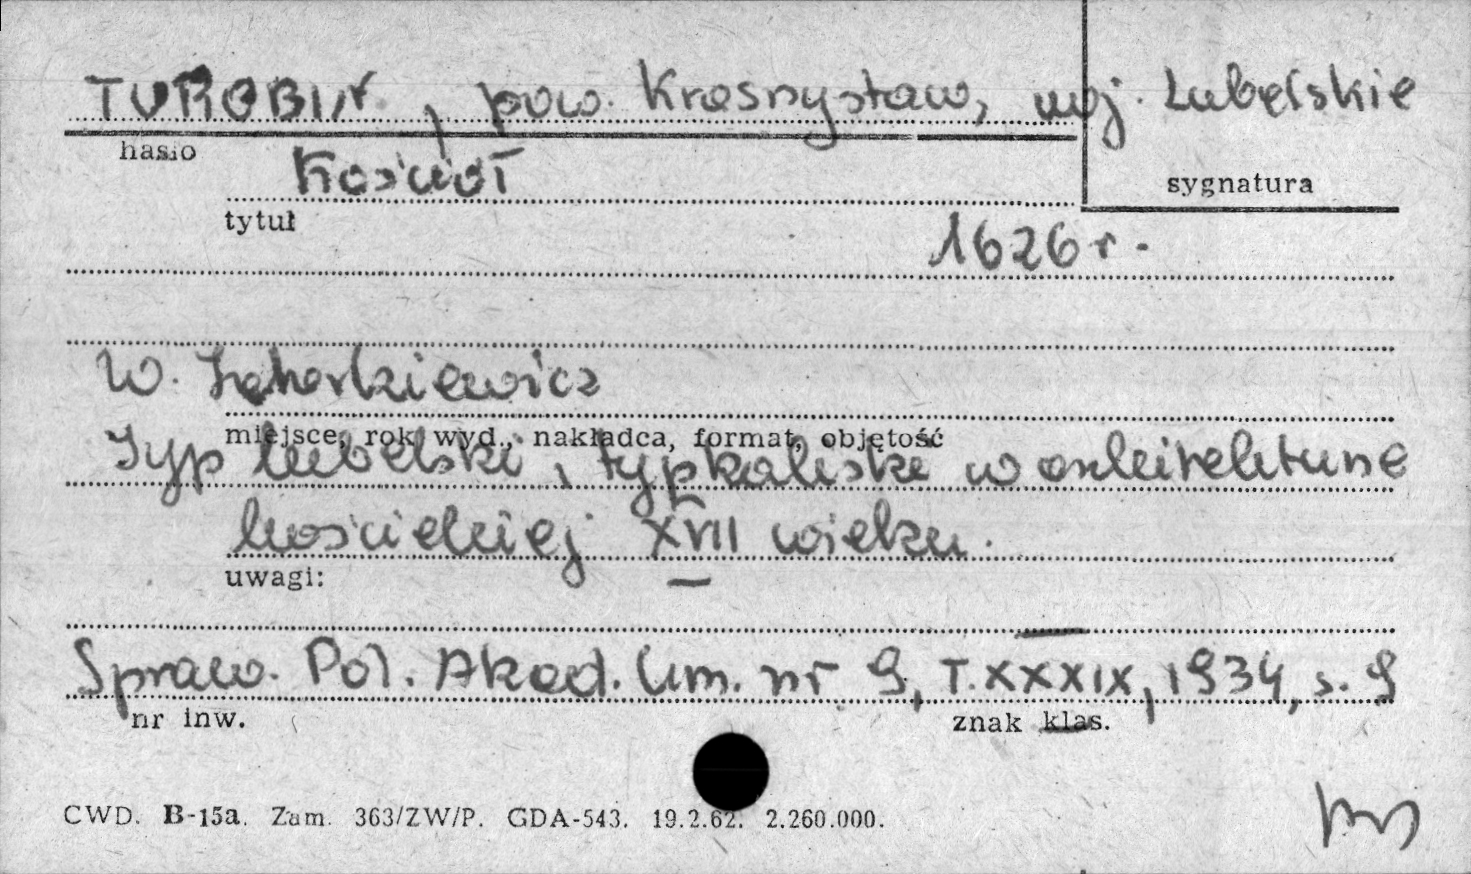 TUROBIN, pow. Krasnystaw, woj. Lubelskie
hasło
Kościół
sygnatura
tytuł
1626 r.
W.
miejsce, rok wyd., nakładca, format, objętość
Typ lubelski i typ kaliski w architekturze
kościelnej XVII wieku.
uwagi:
Spraw. Pol. Akad. Um. nr 9, T. XXXIX, 1934, s. 9
nr inw.
znak klas.
CWD. B-15a. Zam. 363/ZW/P. GDA-543. 19.2.62. 2.260.000.